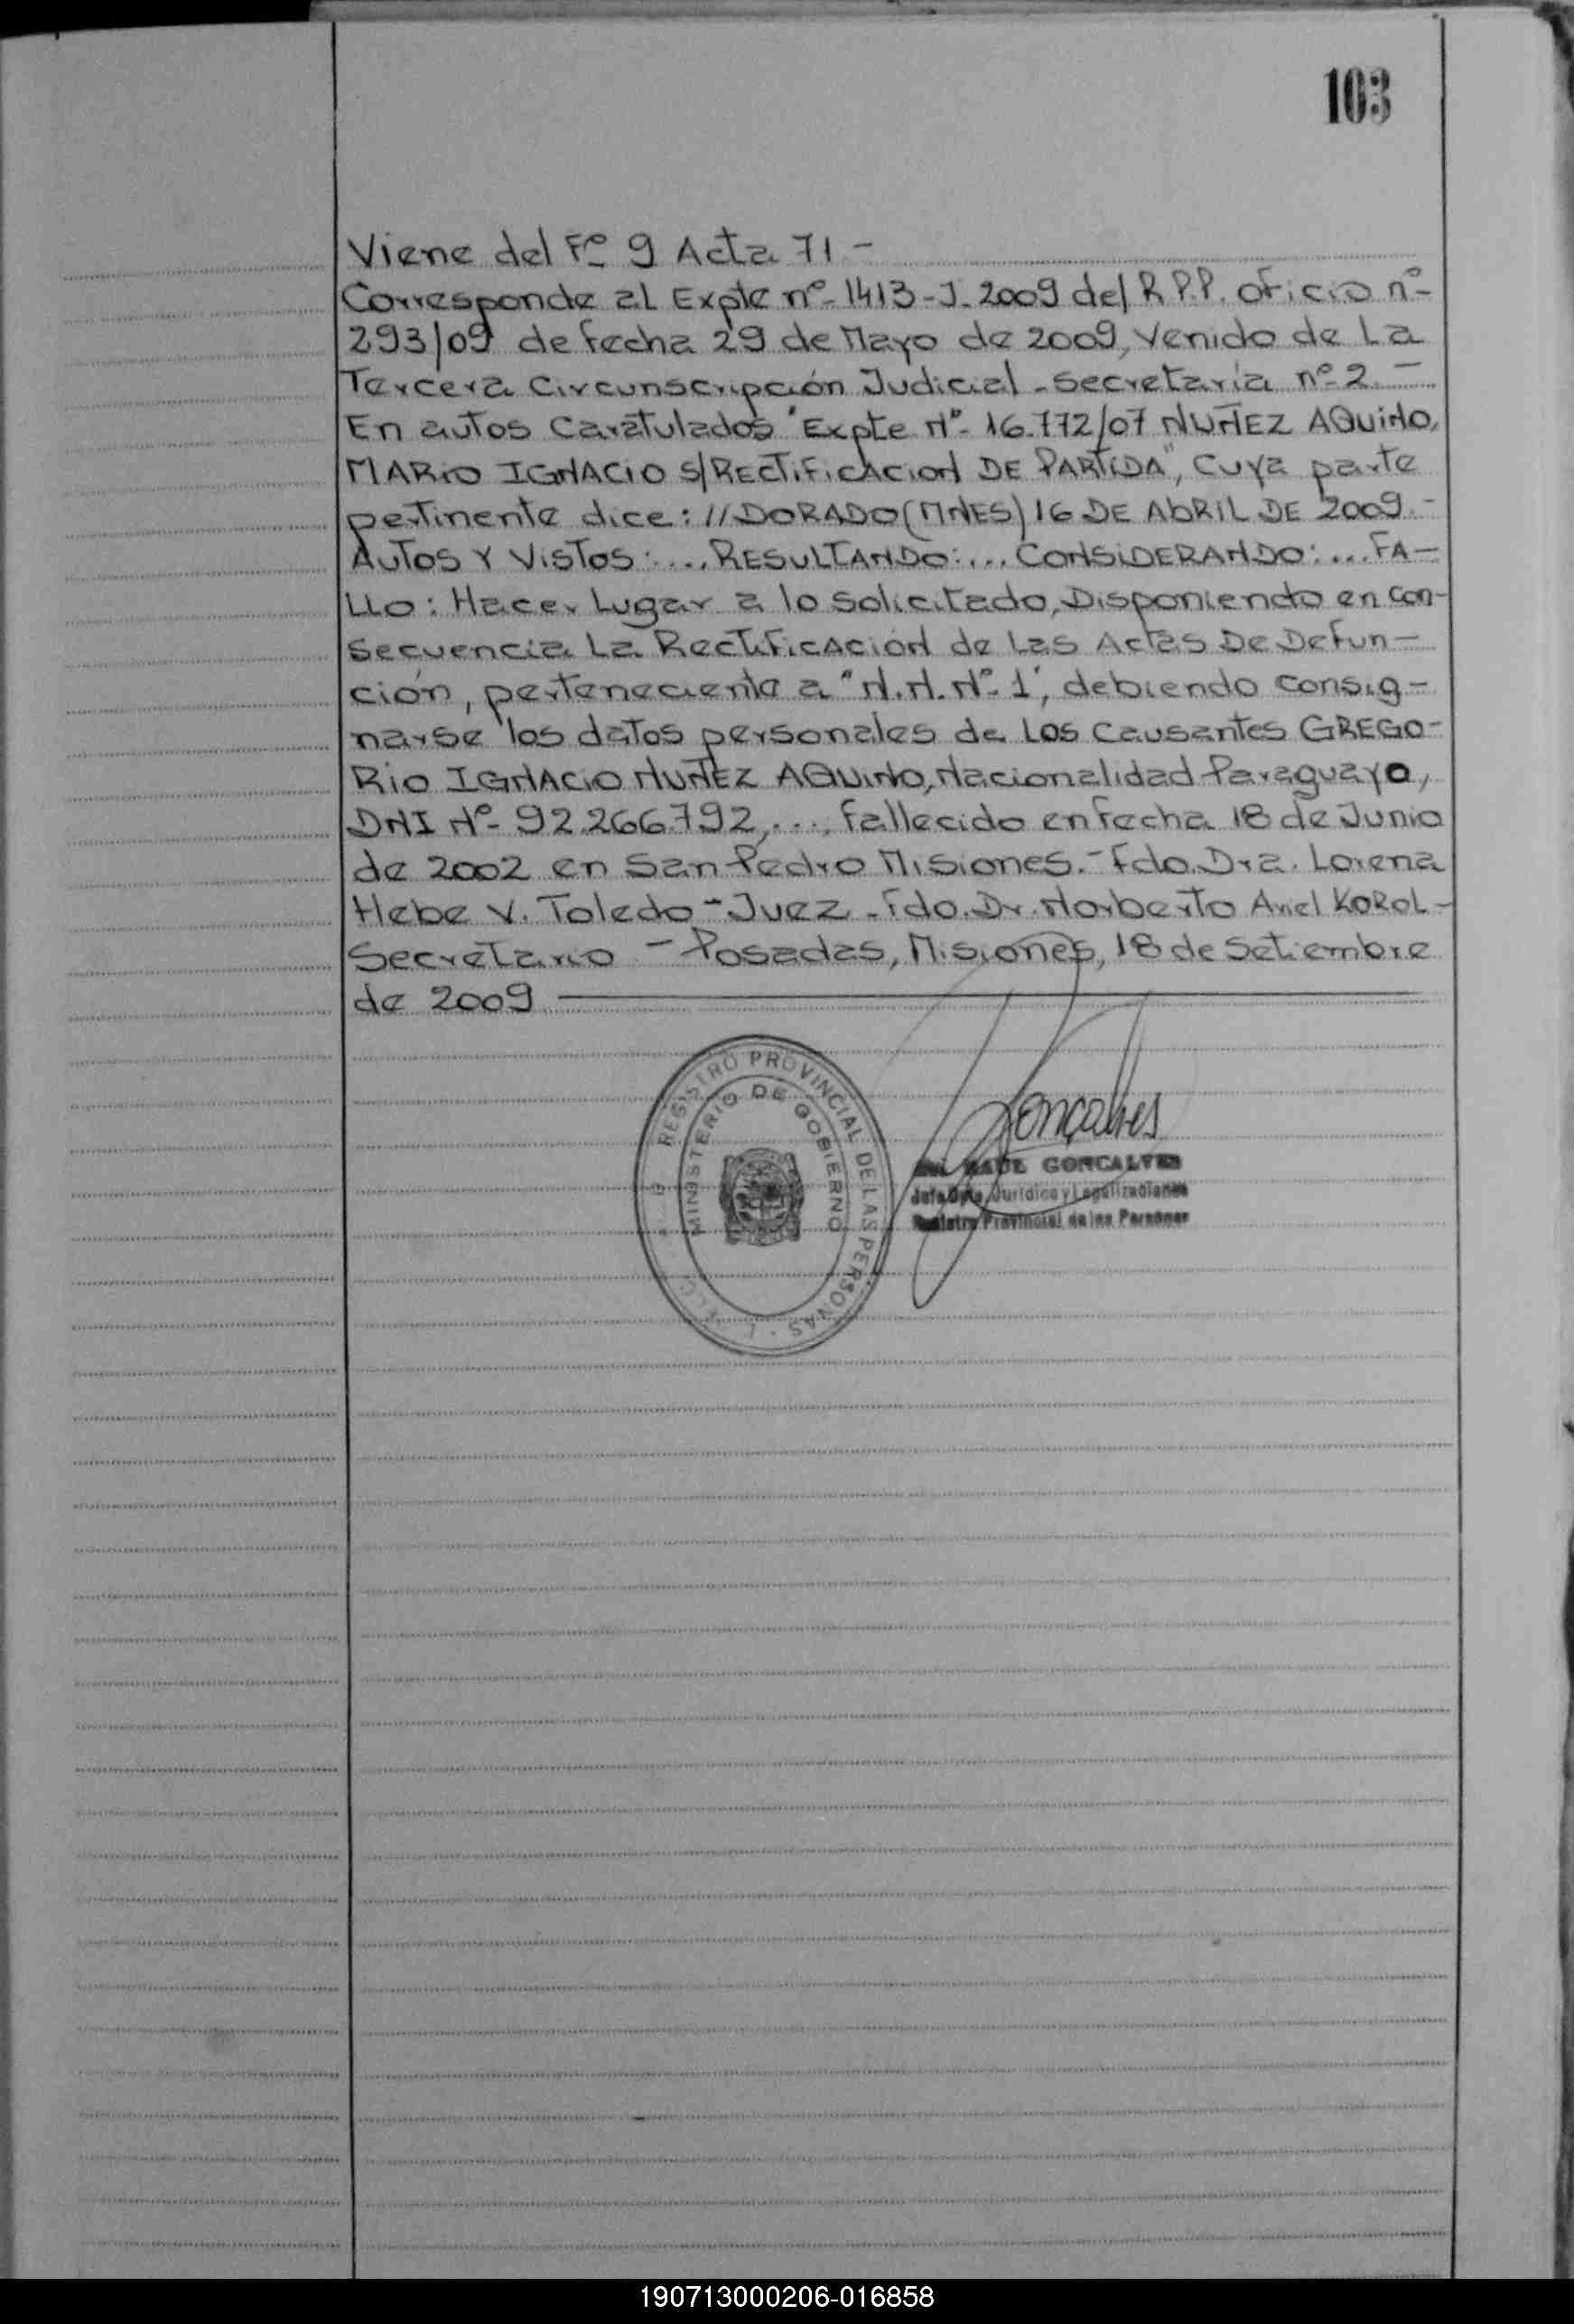 103
Viene del Fº 9 Acta 71 -
Corresponde al Expte nº 1413-J-2009 del R.P.P. oficio nº
293/09 de fecha 29 de Mayo de 2009, venido de La
Tercera Circunscripción Judicial - Secretaría nº 2 -
En autos Caratulados "Expte Nº 16.772/07 NUÑEZ AQUINO,
MARIO IGNACIO S/RECTIFICACION DE PARTIDA", cuya parte
pertinente dice: //DORADO (MNES) 16 DE ABRIL DE 2009.-
AUTOS Y VISTOS:.... RESULTANDO:... CONSIDERANDO:... FA-
LLO: Hacer Lugar a lo solicitado, Disponiendo en con-
secuencia La Rectificación de Las Actas De Defun-
ción, perteneciente a "N.N. Nº 1", debiendo consig-
narse los datos personales de Los Causantes GREGO-
RIO IGNACIO NUÑEZ AQUINO, Nacionalidad Paraguayo,
DNI Nº 92.266.792,..., fallecido en fecha 18 de Junio
de 2002 en San Pedro Misiones.- Fdo. Dra. Lorena
Hebe V. Toledo - Juez - Fdo. Dr. Norberto Ariel KOROL -
Secretario - Posadas, Misiones, 18 de Setiembre
de 2009
REGISTRO PROVINCIAL DE LAS PERSONAS
MINISTERIO DE GOBIERNO
Gonçalves
RAUL GONCALVES
Jefe Dpto. Jurídico y Legalizaciones
Registro Provincial de las Personas
190713000206-016858